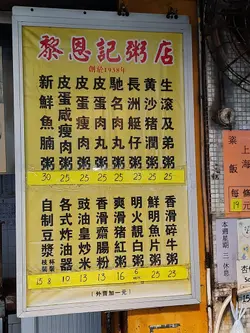 黎恩記粥店
創於1938年
生滾及弟粥 25
黃沙豬潤粥 25
長洲艇仔粥 25
馳名肉丸粥 25
皮蛋肉丸粥 25
皮蛋瘦肉粥 25
皮蛋咸瘦肉粥 25
新鮮魚腩粥 30
香滑碎牛粥 23
鮮明魚片粥 25
明火靚白粥 6
爽滑豬紅粥 16
香滑齋腸粉 13
豉油皇炒米 13
各式炸油器 10
自制豆漿 15 8
(外賣加一元)
上海
粢飯
每條
19元
本週星期三休息